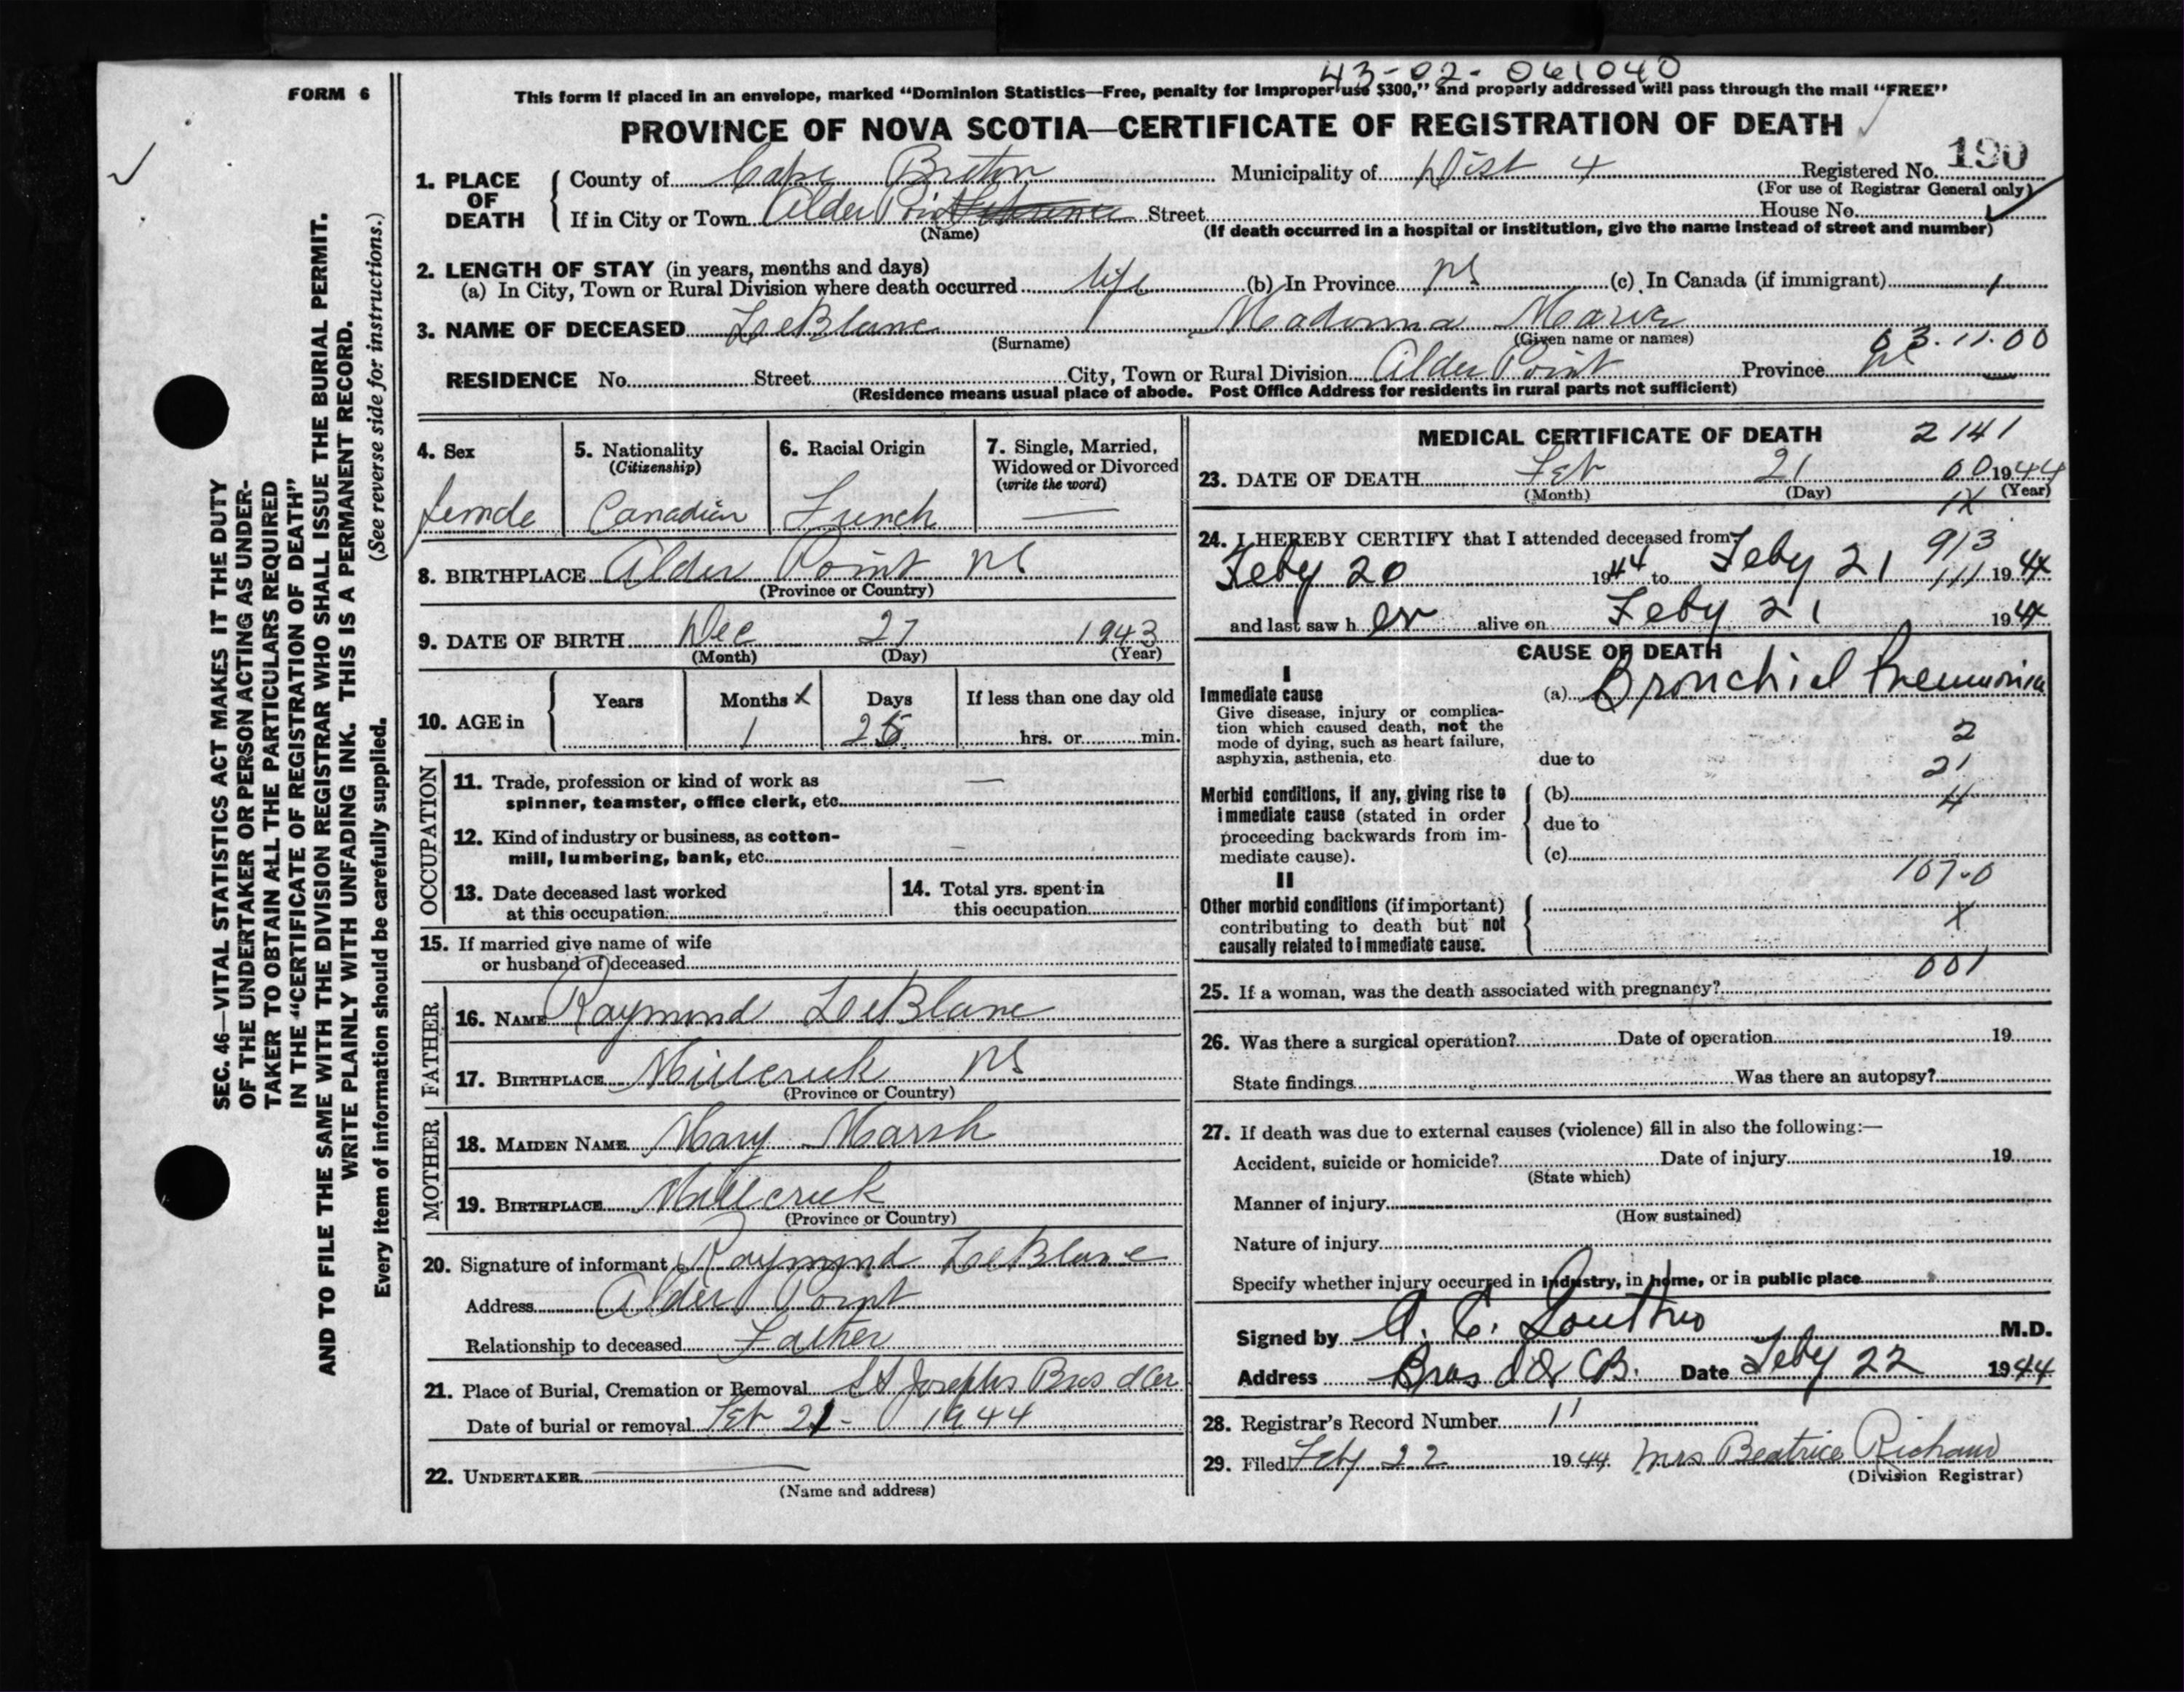 43-02-061040
FORM 6
This form if placed in an envelope, marked "Dominion Statistics—Free, penalty for improper use $300," and properly addressed will pass through the mail "FREE"
PROVINCE OF NOVA SCOTIA—CERTIFICATE OF REGISTRATION OF DEATH
190
1. PLACE OF DEATH
County of Cape Breton Municipality of Dist 4 Registered No.
(For use of Registrar General only)
If in City or Town Alder Point Street House No.
(Name) (If death occurred in a hospital or institution, give the name instead of street and number)
2. LENGTH OF STAY (in years, months and days)
(a) In City, Town or Rural Division where death occurred life (b) In Province NS (c) In Canada (if immigrant)
3. NAME OF DECEASED LeBlanc Madonna Marie
(Surname) (Given name or names)
03.11.00
RESIDENCE No. Street City, Town or Rural Division Alder Point Province NS
(Residence means usual place of abode. Post Office Address for residents in rural parts not sufficient)
4. Sex
female
5. Nationality
(Citizenship)
Canadian
6. Racial Origin
French
7. Single, Married, Widowed or Divorced
(write the word)
—
8. BIRTHPLACE Alder Point NS
(Province or Country)
9. DATE OF BIRTH Dec 27 1943
(Month) (Day) (Year)
10. AGE in
Years Months X Days If less than one day old
1 25 hrs. or min.
OCCUPATION
11. Trade, profession or kind of work as
spinner, teamster, office clerk, etc. —
12. Kind of industry or business, as cotton-
mill, lumbering, bank, etc. —
13. Date deceased last worked
at this occupation
14. Total yrs. spent in
this occupation
15. If married give name of wife
or husband of deceased
FATHER
16. NAME Raymond LeBlanc
17. BIRTHPLACE Millcreek NS
(Province or Country)
MOTHER
18. MAIDEN NAME Mary Marsh
19. BIRTHPLACE Millcreek
(Province or Country)
20. Signature of informant Raymond LeBlanc
Address Alder Point
Relationship to deceased Father
21. Place of Burial, Cremation or Removal St Josephs Bras d'Or
Date of burial or removal Feb 21- 1944
22. UNDERTAKER —
(Name and address)
MEDICAL CERTIFICATE OF DEATH 2141
23. DATE OF DEATH Feb 21 00 1944
(Month) (Day) (Year)
1X
24. I HEREBY CERTIFY that I attended deceased from
913
Feby 20 1944 to Feby 21 111 1944
and last saw h er alive on Feby 21 1944
CAUSE OF DEATH
I
Immediate cause
Give disease, injury or complica-
tion which caused death, not the
mode of dying, such as heart failure,
asphyxia, asthenia, etc.
(a) Bronchial Pneumonia
2
due to
21
Morbid conditions, if any, giving rise to
immediate cause (stated in order
proceeding backwards from im-
mediate cause).
(b) 4
due to
(c)
107-0
II
Other morbid conditions (if important)
contributing to death but not
causally related to immediate cause.
X
001
25. If a woman, was the death associated with pregnancy?
26. Was there a surgical operation? Date of operation 19
State findings Was there an autopsy?
27. If death was due to external causes (violence) fill in also the following:—
Accident, suicide or homicide? Date of injury 19
(State which)
Manner of injury
(How sustained)
Nature of injury
Specify whether injury occurred in industry, in home, or in public place
Signed by A. C. M.D.
Address Bras d'Or CB. Date Feby 22 1944
28. Registrar's Record Number 11
29. Filed Feby 22 1944 Mrs Beatrice Richard
(Division Registrar)
SEC. 46—VITAL STATISTICS ACT MAKES IT THE DUTY
OF THE UNDERTAKER OR PERSON ACTING AS UNDER-
TAKER TO OBTAIN ALL THE PARTICULARS REQUIRED
IN THE "CERTIFICATE OF REGISTRATION OF DEATH"
AND TO FILE THE SAME WITH THE DIVISION REGISTRAR WHO SHALL ISSUE THE BURIAL PERMIT.
WRITE PLAINLY WITH UNFADING INK. THIS IS A PERMANENT RECORD.
Every item of information should be carefully supplied. (See reverse side for instructions.)